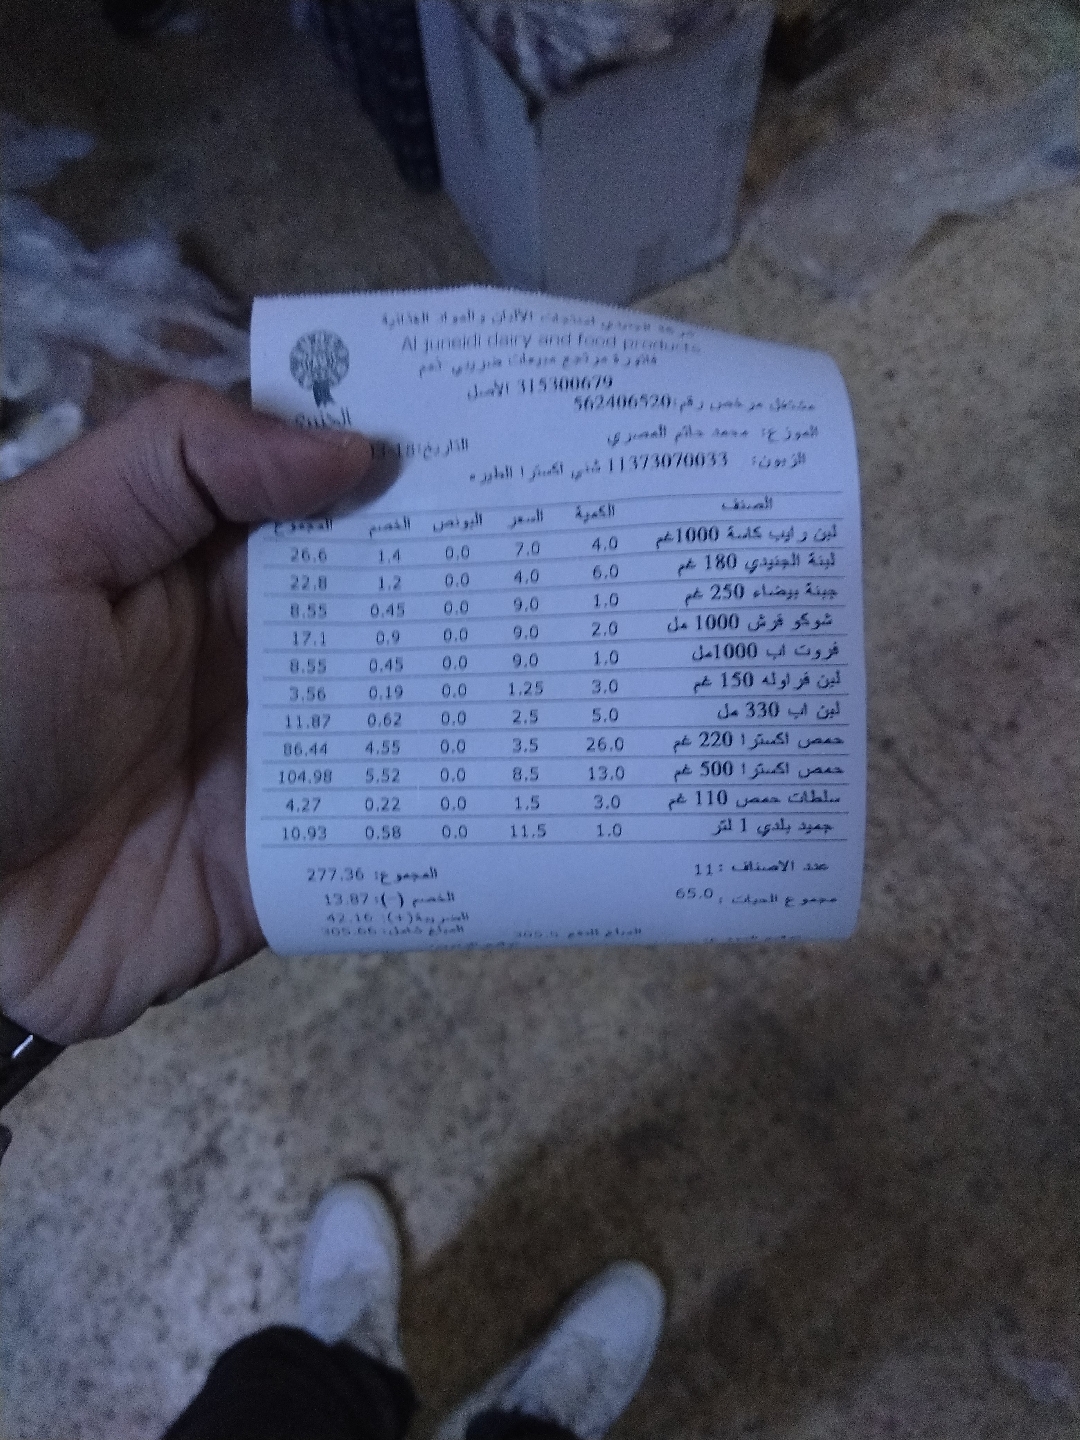 شركة الجنيدي لمنتجات الألبان والمواد الغذائية
Al juneidi dairy and food products
فاتورة مرتجع مبيعات ضريبي
315300679 الأصل
مشتغل مرخص رقم:562406520
الجنيدي
الموزع: محمد حاتم المصري
التاريخ:
الزبون: 11373070033 اكسترا الطيره
الصنف الكمية السعر البونص الخصم المجموع
لبن رايب كاسة 1000غم 4.0 7.0 0.0 1.4 26.6
لبنة الجنيدي 180 غم 6.0 4.0 0.0 1.2 22.8
جبنة بيضاء 250 غم 1.0 9.0 0.0 0.45 8.55
شوكو فرش 1000 مل 2.0 9.0 0.0 0.9 17.1
فروت اب 1000مل 1.0 9.0 0.0 0.45 8.55
لبن فراوله 150 غم 3.0 1.25 0.0 0.19 3.56
لبن اب 330 مل 5.0 2.5 0.0 0.62 11.87
حمص اكسترا 220 غم 26.0 3.5 0.0 4.55 86.44
حمص اكسترا 500 غم 13.0 8.5 0.0 5.52 104.98
سلطات حمص 110 غم 3.0 1.5 0.0 0.22 4.27
جميد بلدي 1 لتر 1.0 11.5 0.0 0.58 10.93
عدد الاصناف :11 المجموع: 277.36
مجموع الحبات :65.0 الخصم (-):13.87
الضريبة(+): 42.16
المبلغ شامل: 305.66